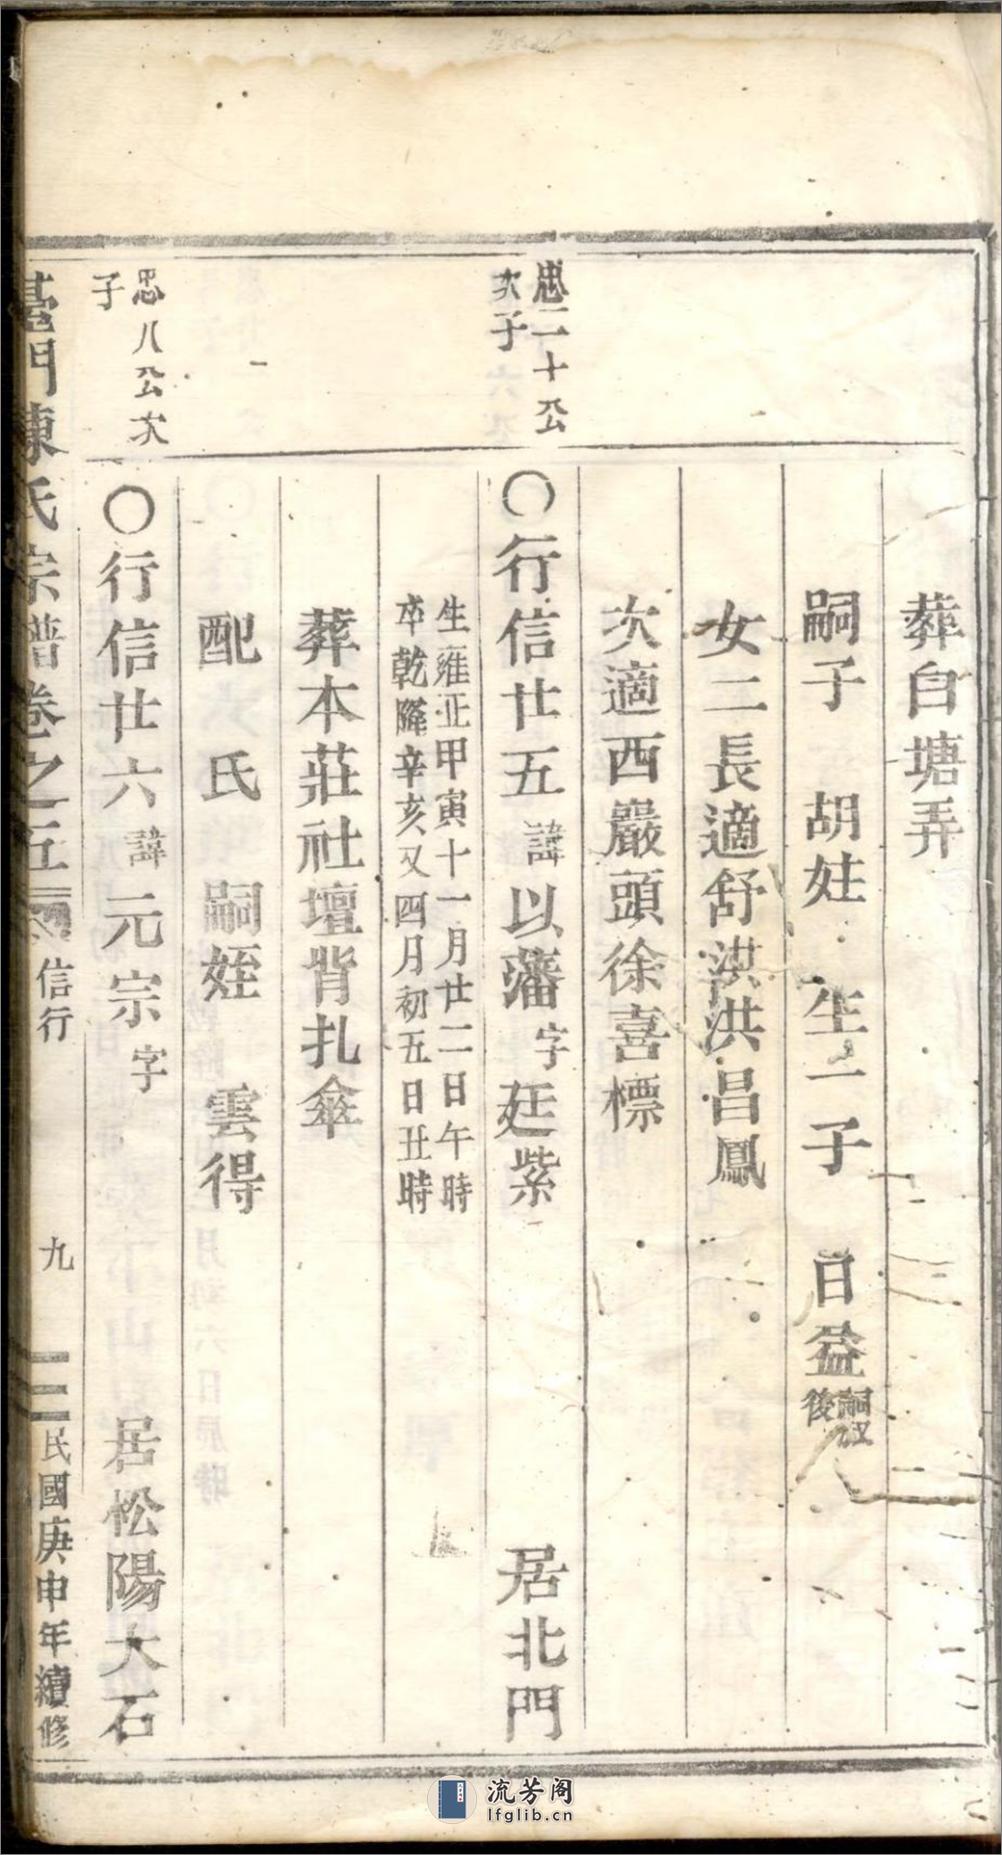 葬白塘弄
嗣子 胡姓 生一子 日益嗣汉後
女二長適舒洪洪昌鳳
次適西嚴頭徐喜標
忠二十公
次子
〇行信廿五諱以藩字廷紫 居北門
生雍正甲寅十一月廿二日午時
卒乾隆辛亥又四月初五日丑時
葬本莊社壇背扎傘
配 氏 嗣姪 雲得
忠八公次
子
〇行信廿六諱元宗字 居松陽大石
臺門陳氏宗譜卷之五 信行 九 民國庚申年續修
流芳阁
lfglib.cn